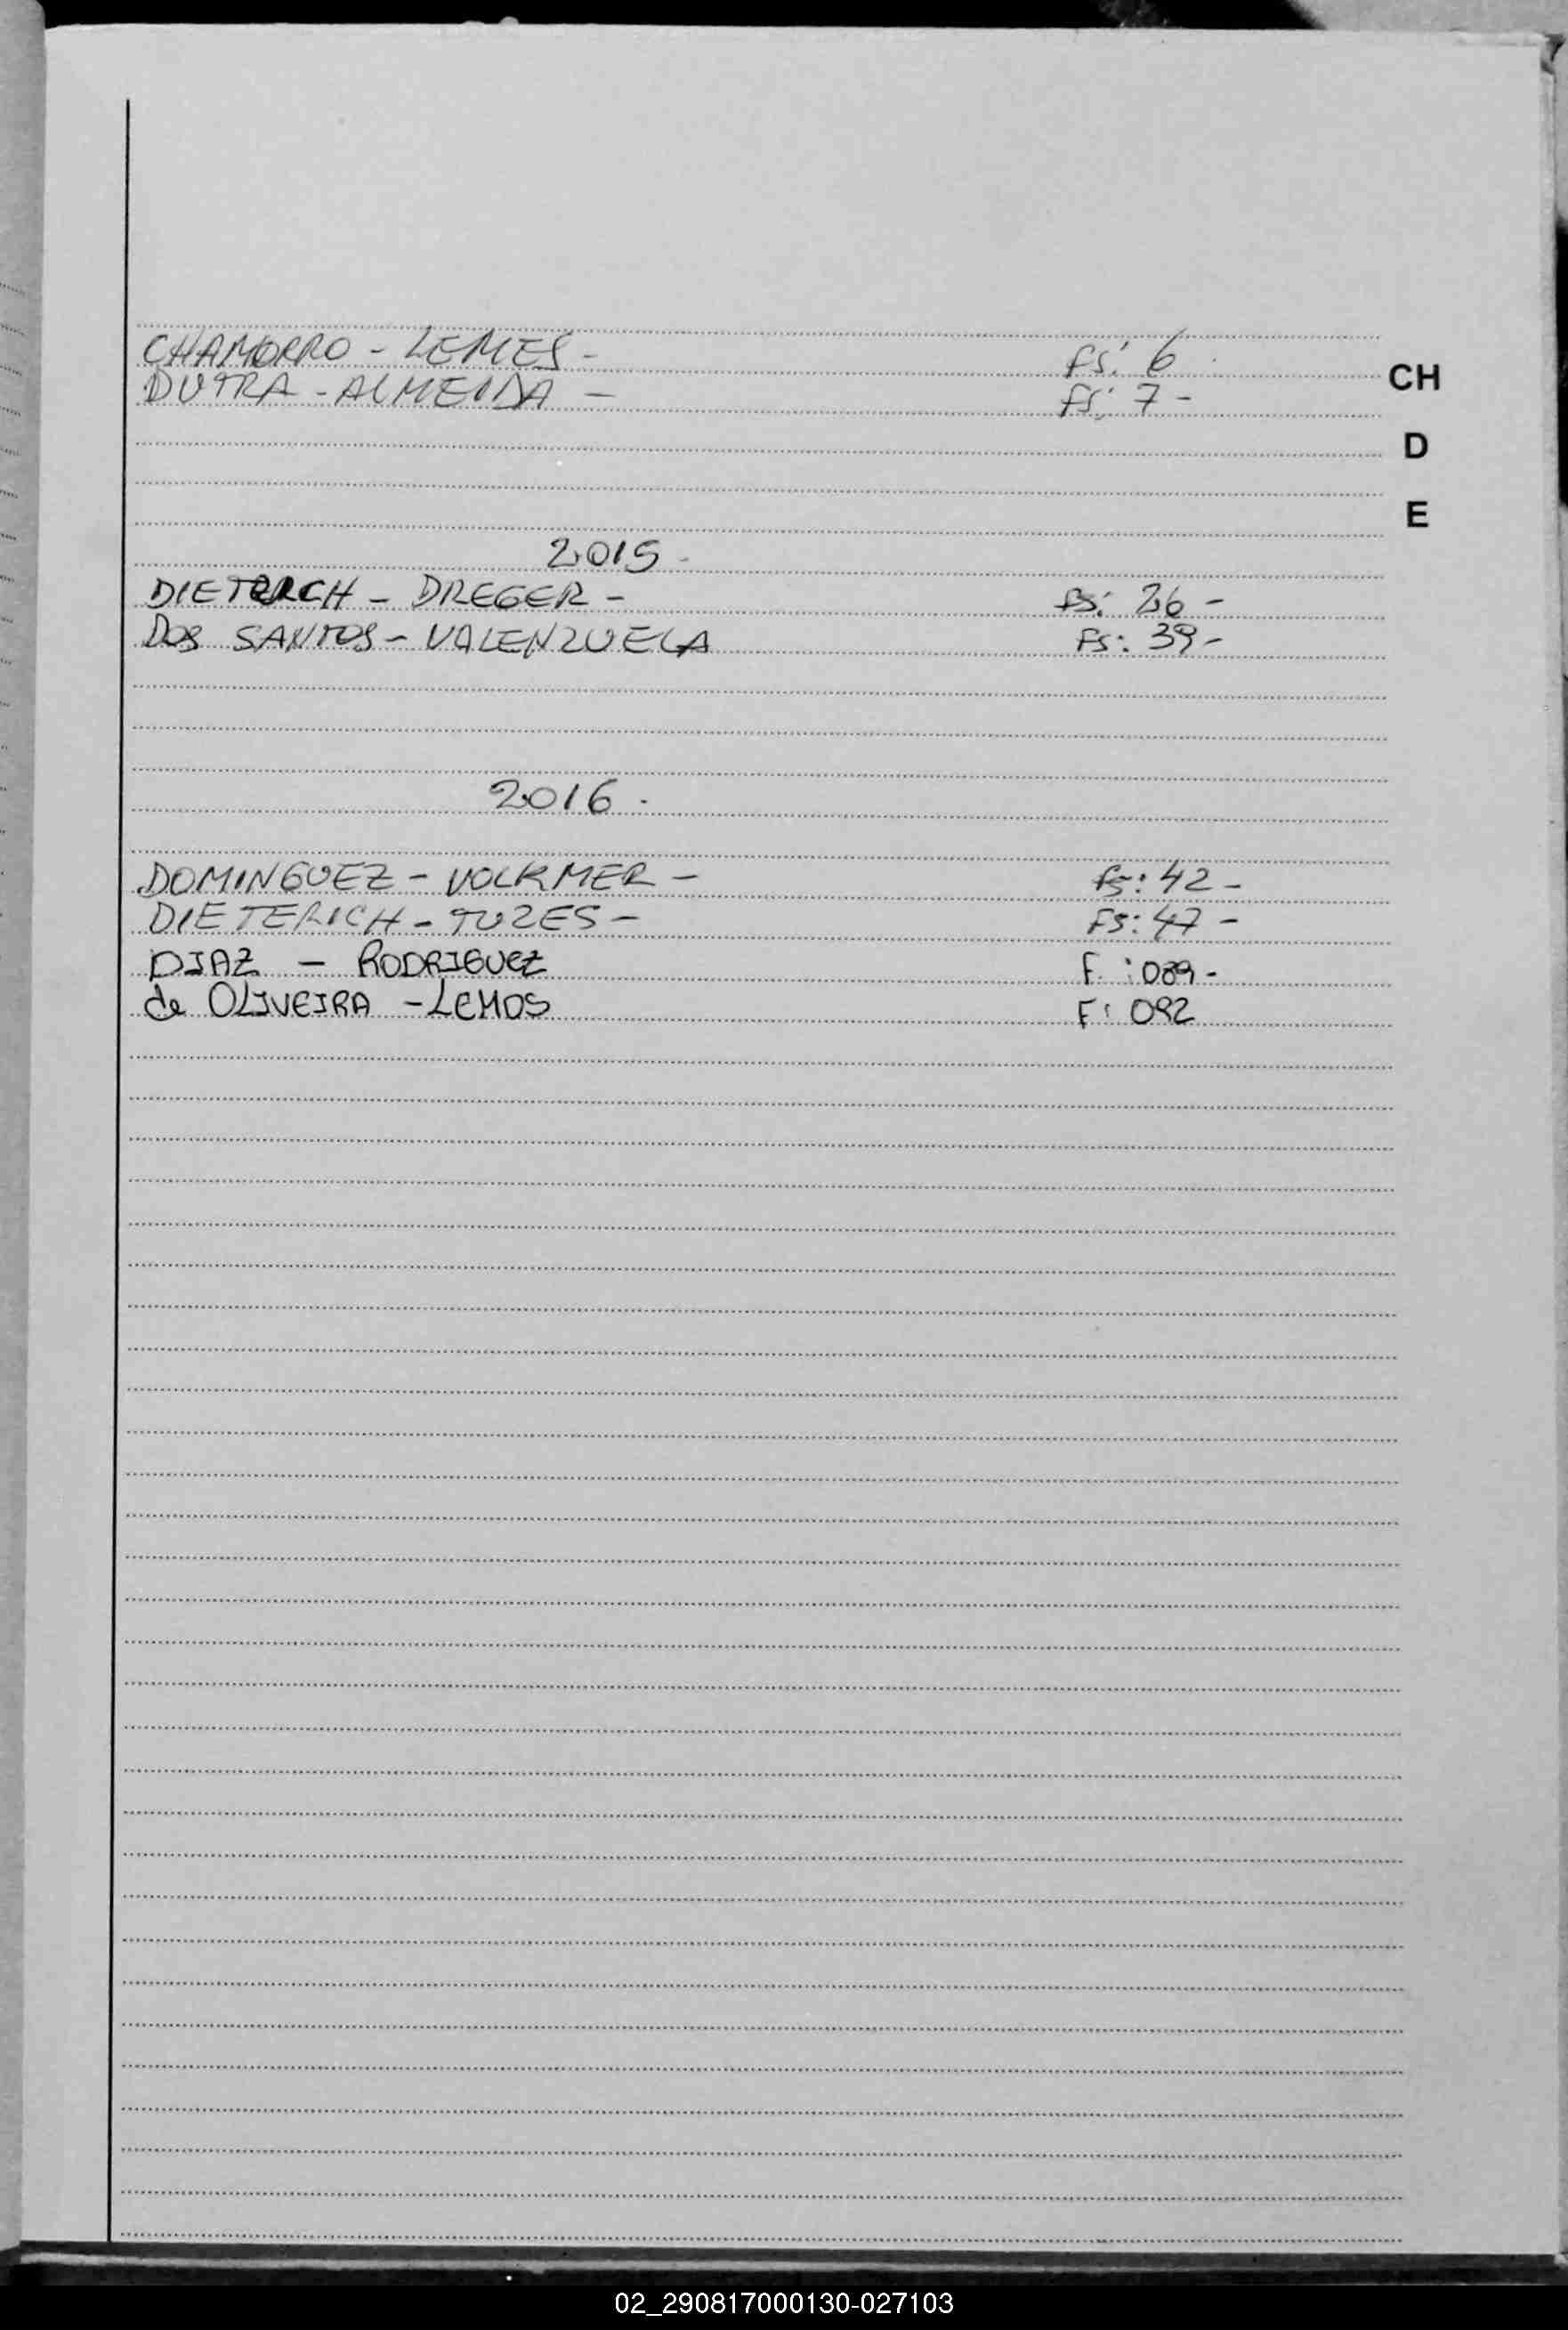 CHAMORRO - LEMES - fs: 6
DUTRA - ALMEIDA - fs: 7 -
CH
D
E
2015 -
DIETERICH - DREGER - fs: 26 -
DOS SANTOS - VALENZUELA fs: 39 -
2016 -
DOMINGUEZ - VOLKMER - fs: 42 -
DIETERICH - TUZES - fs: 47 -
DIAZ - RODRIGUEZ F : 089 -
de OLIVEIRA - LEMOS F: 092
02_290817000130-027103